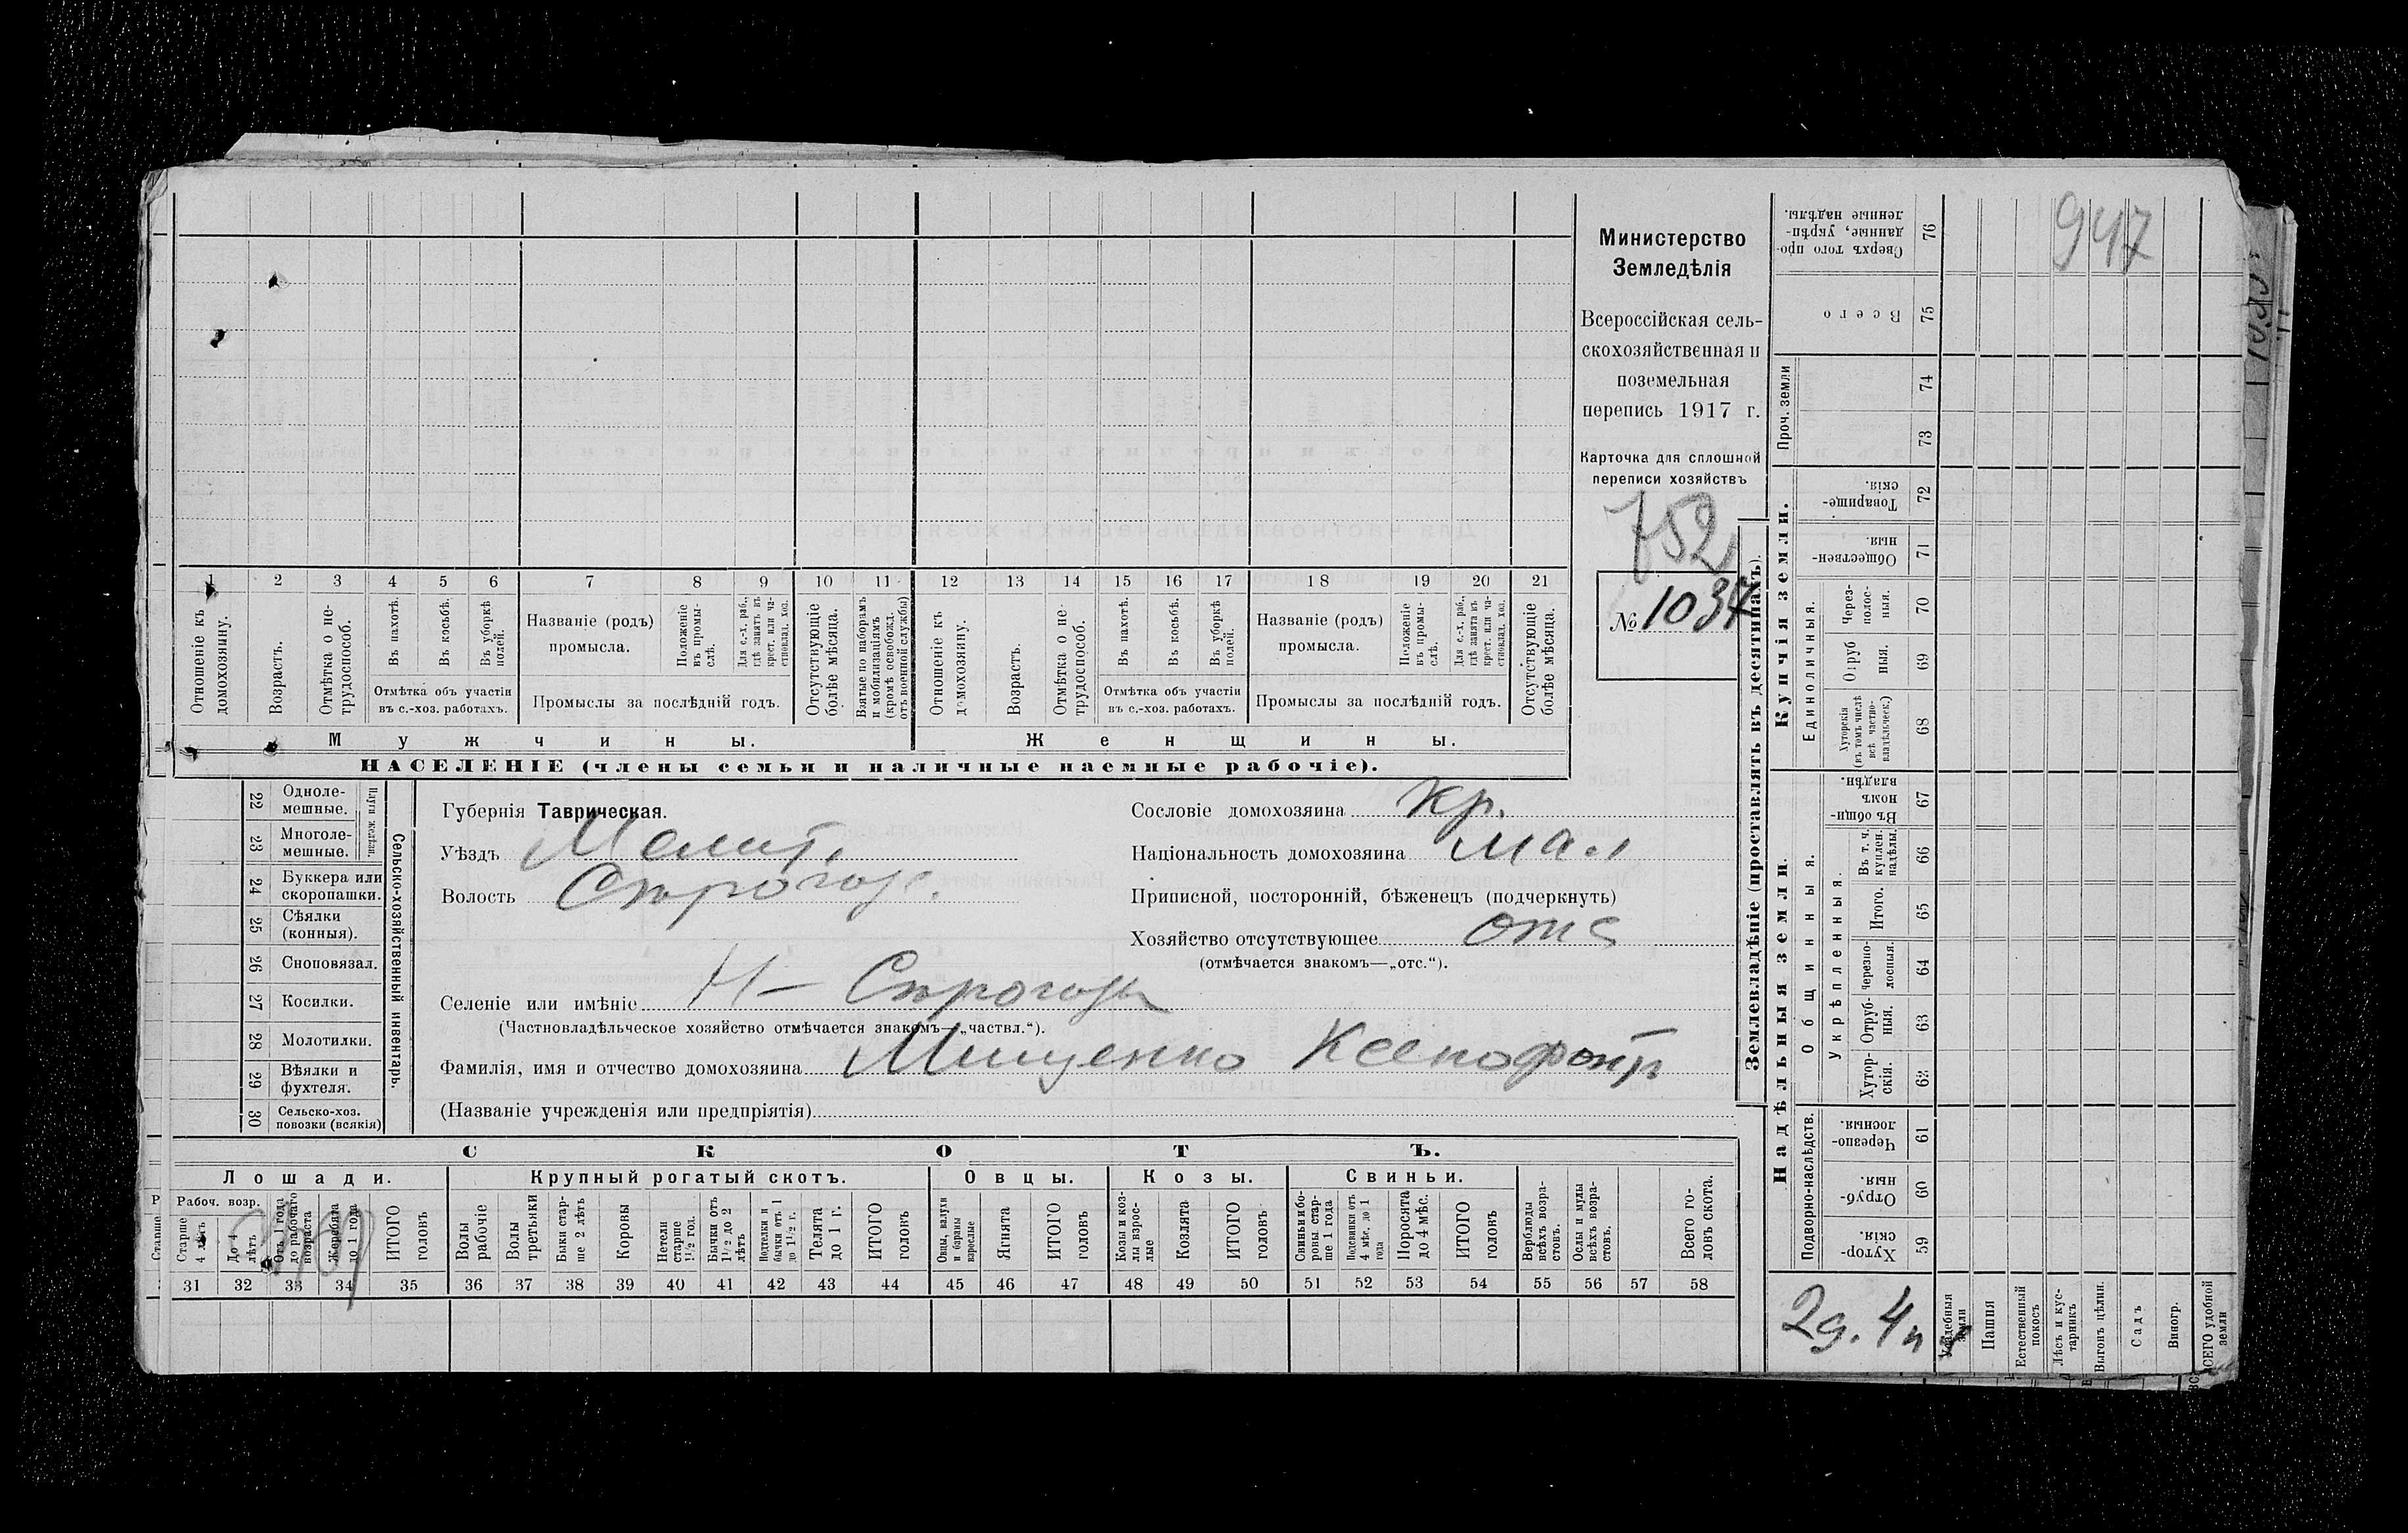 1 2 3 4 5 6 7 8 9 10 11 12 13 14 15 16 17 18 19 20 21
Отношеніе къ домохозяину.
Возрастъ.
Отмѣтка о не-
трудоспособ.
Въ пахотѣ.
Въ косьбѣ.
Въ уборкѣ
полей.
Отмѣтка объ участіи
въ с.-хоз. работахъ.
Названіе (родъ)
промысла.
Положеніе
въ промы-
слѣ.
Для с.-х. раб.,
гдѣ занятъ въ
крест. или ча-
стновлад. хоз.
Промыслы за послѣдній годъ.
Отсутствующіе
болѣе мѣсяца.
Взятые по наборамъ
и мобилизаціямъ
(кромѣ освобожд.
отъ военной службы)
Отношеніе къ
домохозяину.
Возрастъ.
Отмѣтка о не-
трудоспособ.
Въ пахотѣ.
Въ косьбѣ.
Въ уборкѣ
полей.
Отмѣтка объ участіи
въ с.-хоз. работахъ.
Названіе (родъ)
промысла.
Положеніе
въ промы-
слѣ.
Для с.-х. раб.,
гдѣ занята въ
крест. или ча-
стновлад. хоз.
Промыслы за послѣдній годъ.
Отсутствующіе
болѣе мѣсяца.
Мужчины.
Женщины.
НАСЕЛЕНІЕ (члены семьи и наличные наемные рабочіе).
Министерство
Земледѣлія
Всероссійская сель-
скохозяйственная и
поземельная
перепись 1917 г.
Карточка для сплошной
переписи хозяйствъ
752
№ 1037
22 Одноле-
мешные.
23 Многоле-
мешные.
Плуги желѣзн.
24 Буккера или
скоропашки.
25 Сѣялки
(конныя).
26 Сноповязал.
27 Косилки.
28 Молотилки.
29 Вѣялки и
фухтеля.
30 Сельско-хоз.
повозки (всякія)
Сельско-хозяйственный инвентарь.
Губернія Таврическая.
Уѣздъ Мелит.
Волость Сѣрогоз.
Сословіе домохозяина кр.
Національность домохозяина мал
Приписной, посторонній, бѣженецъ (подчеркнуть)
Хозяйство отсутствующее отс
(отмѣчается знакомъ—„отс.“).
Селеніе или имѣніе Н – Сѣрогозы
(Частновладѣльческое хозяйство отмѣчается знакомъ—„частвл.“).
Фамилія, имя и отчество домохозяина Мищенко Ксенофонтъ
(Названіе учрежденія или предпріятія)
СКОТЪ.
Лошади.
Крупный рогатый скотъ.
Овцы.
Козы.
Свиньи.
Рабоч. возр.
Старше
4 лѣтъ
До 4
лѣтъ
Отъ 1 года
до рабочаго
возраста
Жеребята
до 1 года
ИТОГО
головъ
Волы
рабочіе
Волы
третьяки
Быки стар-
ше 2 лѣтъ
Коровы
Нетели
старше
1½ гол.
Бычки отъ
1½ до 2
лѣтъ
Нетелки и
бычки отъ 1
до 1½ г.
Телята
до 1 г.
ИТОГО
головъ
Овцы, валухи
и бараны
взрослые
Ягнята
ИТОГО
головъ
Козы и коз-
лы взрос-
лые
Козлята
ИТОГО
головъ
Свиньи и бо-
ровы стар-
ше 1 года
Подсвинки отъ
4 мѣс. до 1
года
Поросята
до 4 мѣс.
ИТОГО
головъ
Верблюды
всѣхъ возра-
стовъ.
Ослы и мулы
всѣхъ возра-
стовъ.
Всего го-
ловъ скота.
31 32 33 34 35 36 37 38 39 40 41 42 43 44 45 46 47 48 49 50 51 52 53 54 55 56 57 58
Землевладѣніе (проставлять въ десятинахъ).
Купчія земли.
Надѣльныя земли.
Сверхъ того про-
данные, укрѣп-
ленные надѣлы.
76
947
Всего
75
Проч. земли
74
73
Товарище-
скія.
72
Обществен-
ныя.
71
Единоличныя.
Через-
полос-
ныя.
70
Отруб
ныя.
69
Хуторскія
(въ томъ числѣ
всѣ частно-
владѣльческ.)
68
Общинныя.
Въ общи-
номъ
владѣн.
67
Укрѣпленныя.
Въ т. ч.
куплен.
надѣлы.
66
Итого.
65
Черезпо-
лосныя.
64
Отруб-
ныя.
63
Хутор-
скія.
62
Подворно-наслѣдств.
Черезпо-
лосныя.
61
Отруб-
ныя.
60
Хутор-
скія.
59
2д. 4н
Усадебныя
земли
Пашня
Естественный
покосъ
Лѣсъ и кус-
тарникъ
Выгонъ цѣлин.
Садъ
Виногр.
ВСЕГО удобной
земли